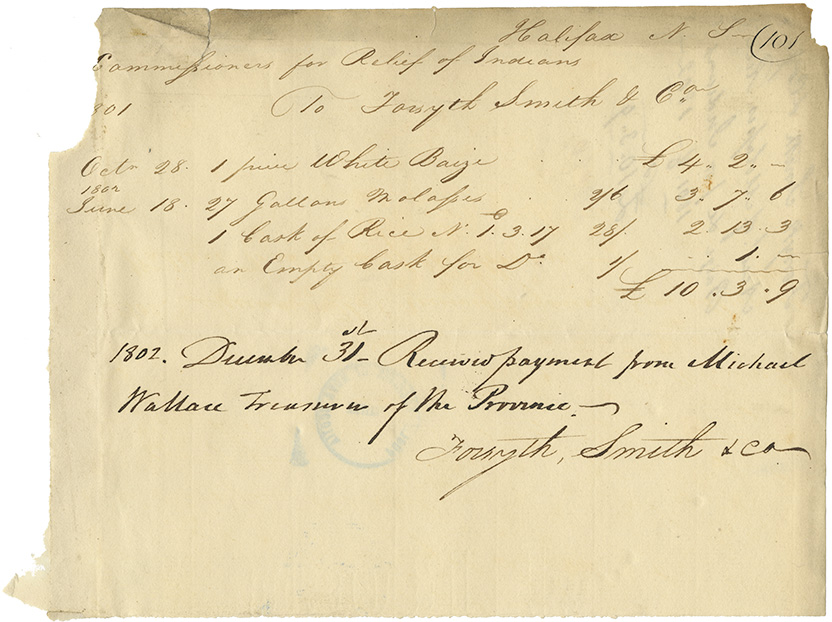 Halifax N. S— (101
Commissioners for Relief of Indians
801 To Forsyth Smith & Co.
Octr 28. 1 piece White Baize . . . £ 4. 2. —
1802
June 18. 27 Gallons Molasses 2/6 3. 7. 6
1 Cask of Rice N. 1. 3. 17 28/. 2. 13. 3
an Empty Cask for Do. 1/ . . 1. —
£ 10. 3. 9
1802. December 31st— Received payment from Michael
Wallace Treasurer of the Province.—
Forsyth, Smith & Co